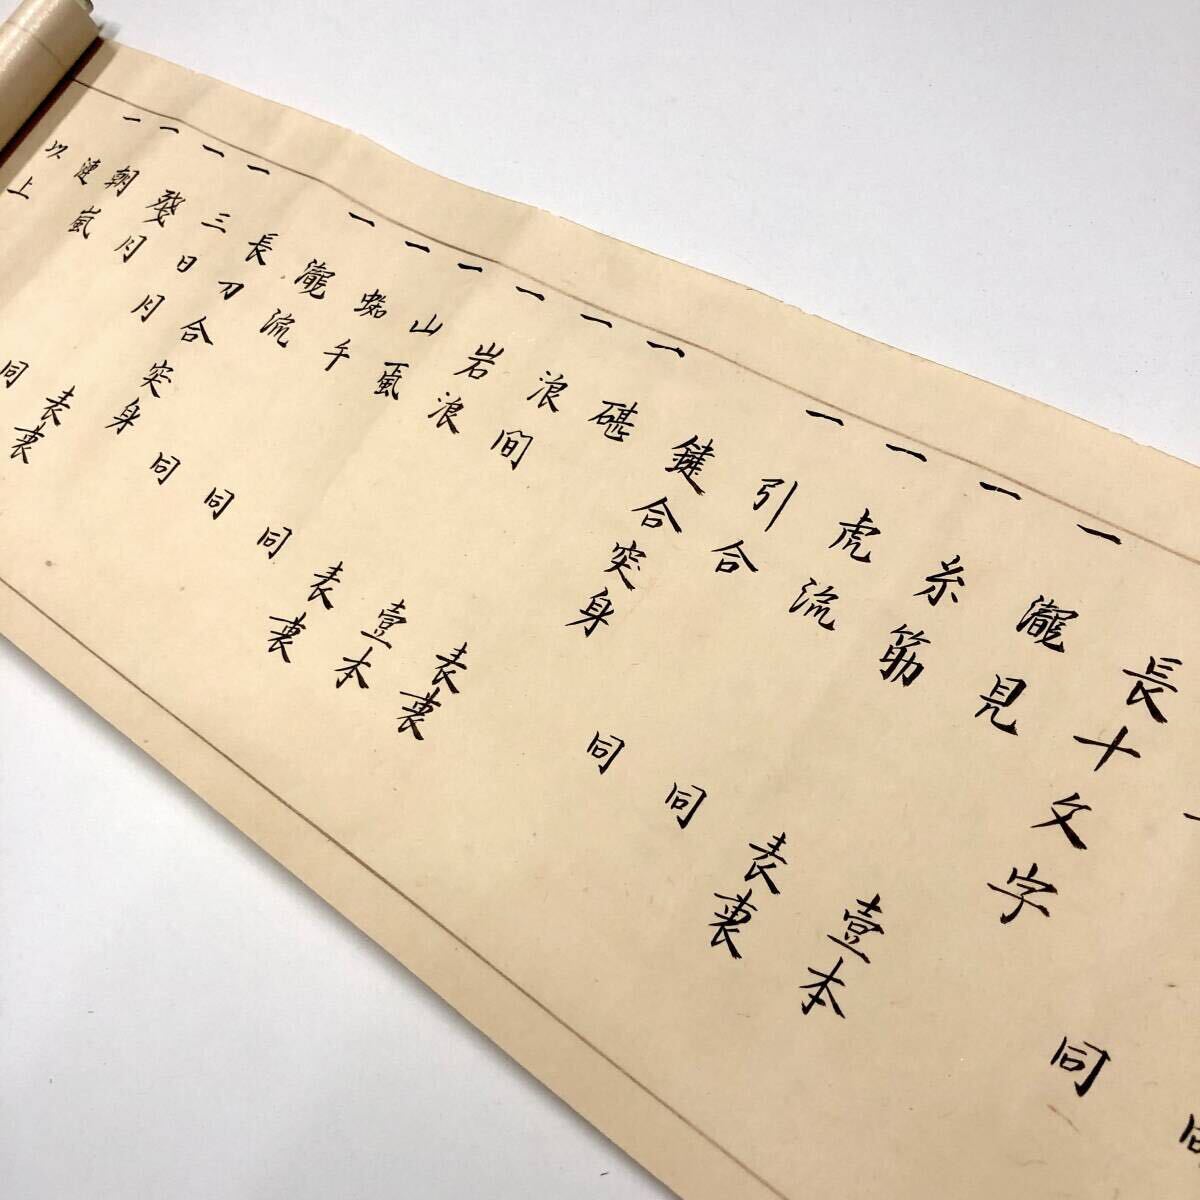 同
長十文字
一 瀧見 壹本
一 糸筋 表裏
一 虎流 同
一 引合 同
鍵合突身
一 碪 表裏
一 浪間 壹本
一 岩浪 表裏
一 山颪 同
一 蜘手 同
一 瀧流 同
長刀合突身
一 三日月 表裏
一 殘月 同
一 朝嵐
一 漣
以上